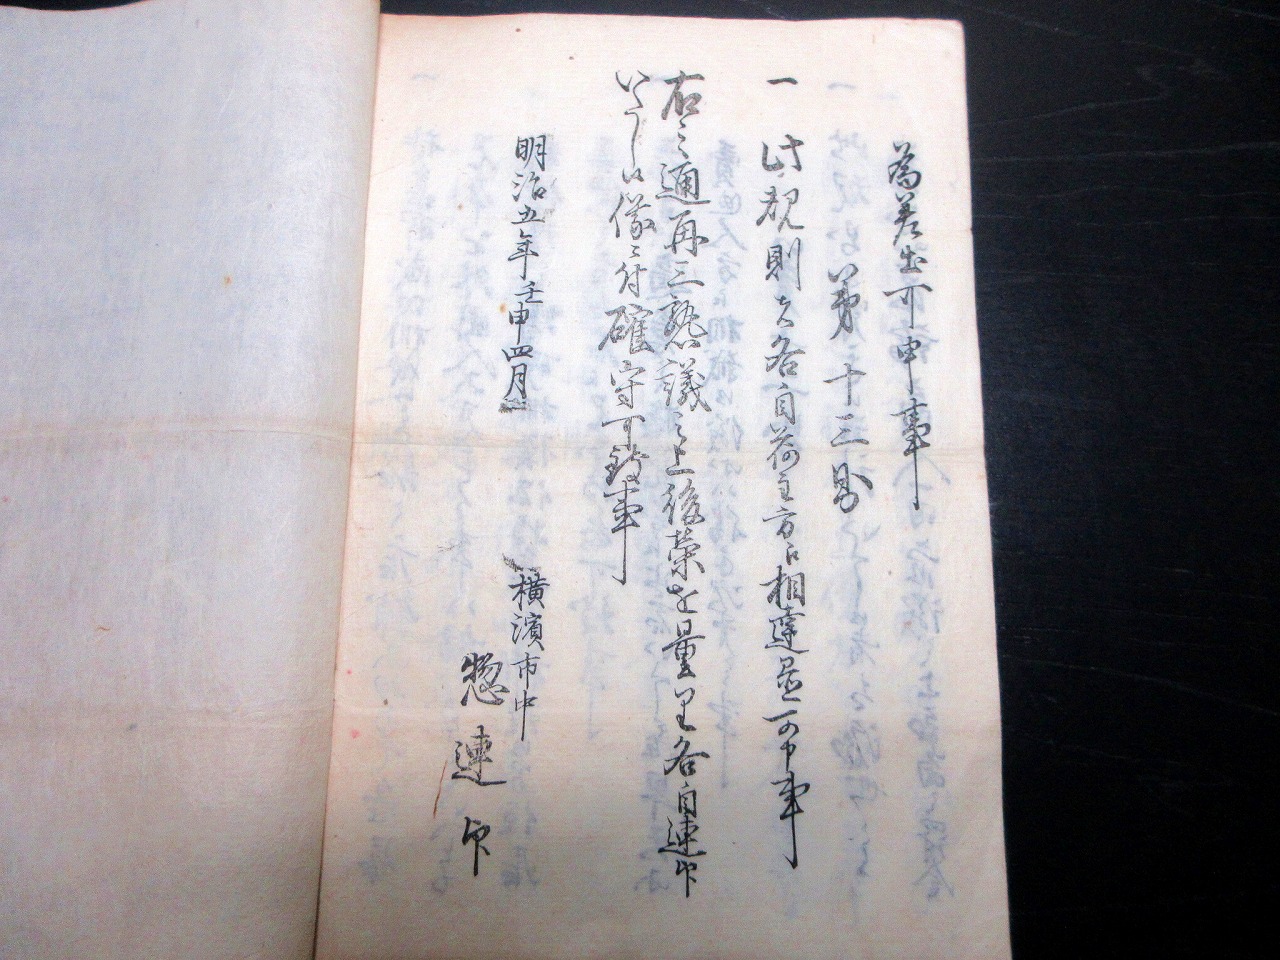 為差出可申事
第十三則
一 此規則者各自荷主方江相達置可申事
右之通再三熟議之上後栄を量里各自連印
いたし候儀ニ付確守可致事
明治五年壬申四月
横濱市中
惣連印